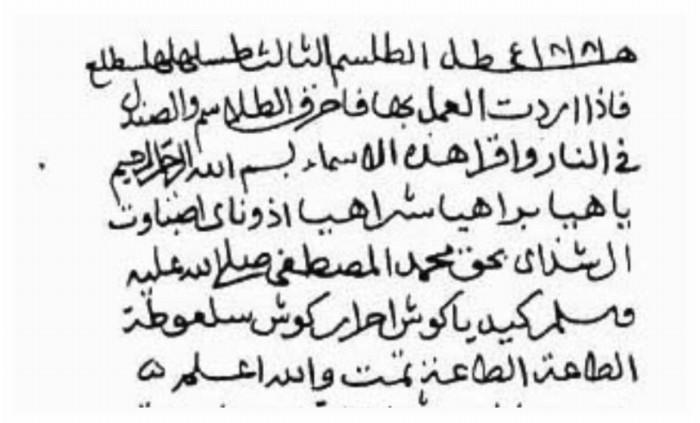 الطلسم الثالث
فاذا اردت العمل بها فاحرق الطلاسم والصندل
في النار واقرا هذه الاسماء بسم الله الرحمن الرحيم
يا هيا براهيا شراهيا اذوناى اصباوت
ال شداى بحق محمد المصطفى صلى الله عليه
وسلم كيد ياكوش احرار كوش سلعوطة
الطاعة الطاعة تمت والله اعلم ه